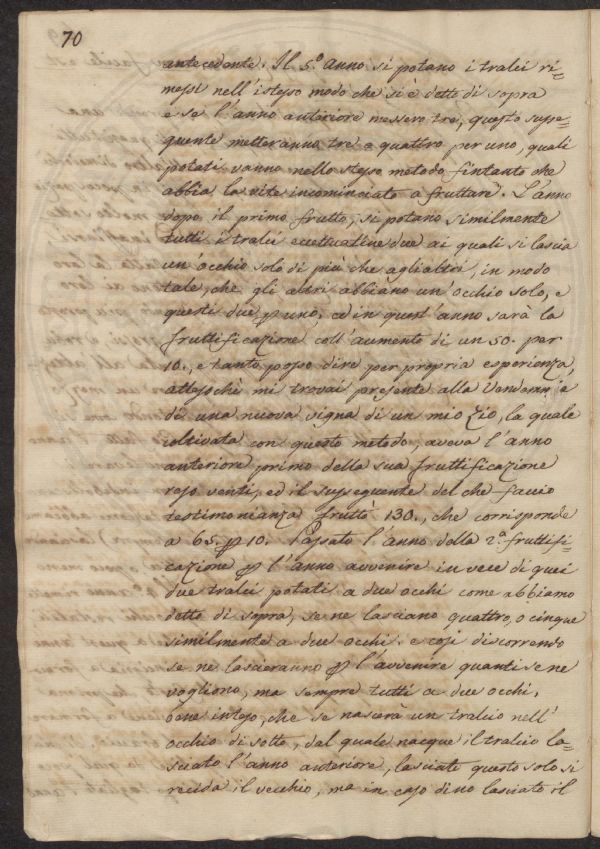 70
antecedente. Il 5.º anno si potano i tralci ri=
messi nell'istesso modo che si è detto di sopra
e se l'anno anteriore messero tre, questo susse=
quente metteranno tre o quattro per uno, quali
potati vanno nello stesso metodo fintanto che
abbia la vite incominciato a fruttare. L'anno
dopo il primo frutto, si potano similmente
tutti i tralci eccettuatine due ai quali si lascia
un'occhio solo di più che agli altri, in modo
tale, che gli altri abbiano un'occhio solo, e
questi due p uno, ed in quest'anno sarà la
fruttificazione coll'aumento di un 50. per
10., e tanto posso dire per propria esperienza,
attesochè mi trovai presente alla Vendemmia
di una nuova vigna di un mio Zio, la quale
coltivata con questo metodo, aveva l'anno
anteriore primo della sua fruttificazione
reso venti, ed il sussequente del che faccio
testimonianza fruttò 130., che corrisponde
a 65. p 10. Passato l'anno della 2.ª fruttifi=
cazione p l'anno avvenire in vece di quei
due tralci potati a due occhi come abbiamo
detto di sopra, se ne lasciano quattro, o cinque
similmente a due occhi. e così discorrendo
se ne lascieranno p l'avvenire quanti se ne
vogliono, ma sempre tutti a due occhi,
bene inteso, che se nascerà un tralcio nell'
occhio di sotto, dal quale nacque il tralcio la=
sciato l'anno anteriore, lasciato questo solo si
recida il vecchio, ma in caso di no lasciato il